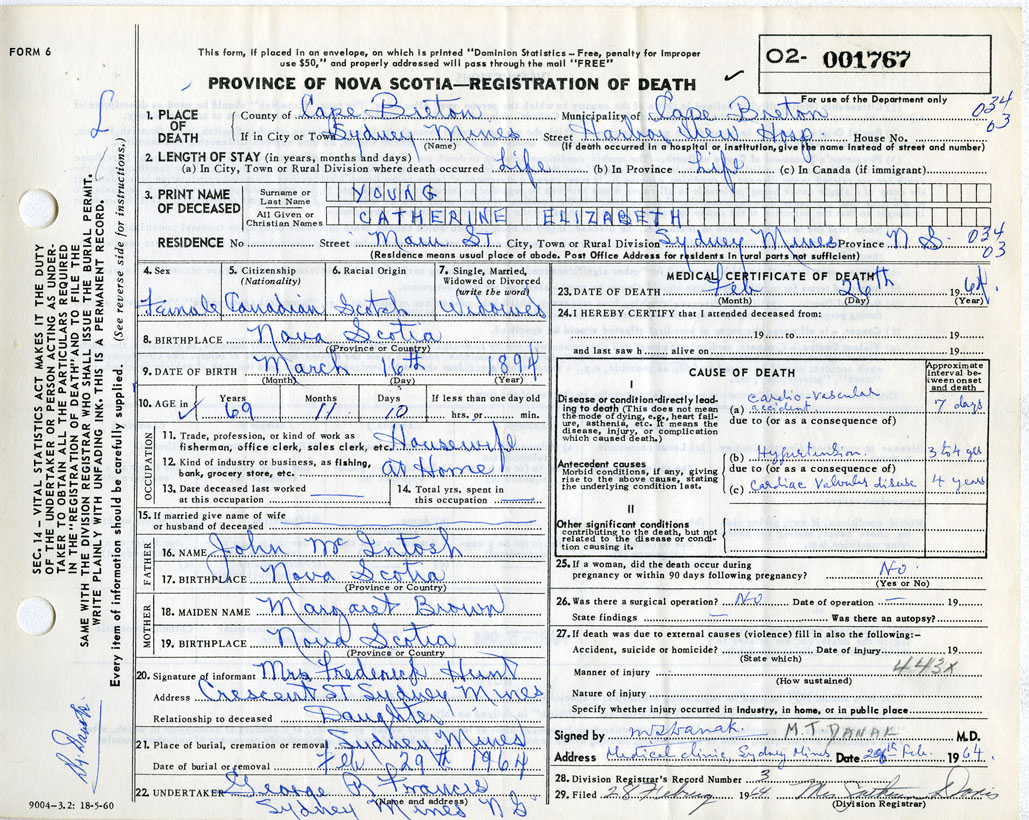 FORM 6
This form, if placed in an envelope, on which is printed "Dominion Statistics – Free, penalty for improper
use $50," and properly addressed will pass through the mail "FREE"
02- 001767
PROVINCE OF NOVA SCOTIA—REGISTRATION OF DEATH
For use of the Department only
1. PLACE OF DEATH County of Cape Breton Municipality of Cape Breton 034
If in City or Town Sydney Mines Street Harbor View Hosp House No. 03
(Name) (If death occurred in a hospital or institution, give the name instead of street and number)
2. LENGTH OF STAY (in years, months and days)
(a) In City, Town or Rural Division where death occurred Life (b) In Province Life (c) In Canada (if immigrant)
3. PRINT NAME OF DECEASED Surname or Last Name YOUNG
All Given or Christian Names CATHERINE ELIZABETH
RESIDENCE No Street Main St City, Town or Rural Division Sydney Mines Province N S 034
03
(Residence means usual place of abode. Post Office Address for residents in rural parts not sufficient)
4. Sex Female
5. Citizenship (Nationality) Canadian
6. Racial Origin Scotch
7. Single, Married, Widowed or Divorced (write the word) Widowed
8. BIRTHPLACE Nova Scotia
(Province or Country)
9. DATE OF BIRTH March 16th 1894
(Month) (Day) (Year)
10. AGE in Years 69 Months 11 Days 10 If less than one day old hrs. or min.
OCCUPATION
11. Trade, profession, or kind of work as fisherman, office clerk, sales clerk, etc. Housewife
12. Kind of industry or business, as fishing, bank, grocery store, etc. at Home
13. Date deceased last worked at this occupation
14. Total yrs. spent in this occupation
15. If married give name of wife or husband of deceased
FATHER
16. NAME John Mc Intosh
17. BIRTHPLACE Nova Scotia
MOTHER
18. MAIDEN NAME Margaret Brown
19. BIRTHPLACE Nova Scotia
(Province or Country)
20. Signature of informant Mrs Frederick Hunt
Address Crescent ST Sydney Mines
Relationship to deceased Daughter
21. Place of burial, cremation or removal Sydney Mines
Date of burial or removal Feb 29th 1964
22. UNDERTAKER George R Francis
(Name and address)
Sydney Mines N S
9004-3.2: 18-5-60
MEDICAL CERTIFICATE OF DEATH
23. DATE OF DEATH Feb 26th 1964
(Month) (Day) (Year)
24. I HEREBY CERTIFY that I attended deceased from:
19 to 19
and last saw h alive on 19
CAUSE OF DEATH
Approximate interval between onset and death
I
Disease or condition directly leading to death (This does not mean the mode of dying, e.g., heart failure, asthenia, etc. It means the disease, injury, or complication which caused death.)
(a) cardio-vascular accident 7 days
due to (or as a consequence of)
Antecedent causes
Morbid conditions, if any, giving rise to the above cause, stating the underlying condition last.
(b) Hypertension 3 to 4 yrs
due to (or as a consequence of)
(c) Cardiac Valvular disease 4 years
II
Other significant conditions
contributing to the death, but not related to the disease or condition causing it.
25. If a woman, did the death occur during pregnancy or within 90 days following pregnancy? No.
(Yes or No)
26. Was there a surgical operation? No Date of operation — 19
State findings — Was there an autopsy?
27. If death was due to external causes (violence) fill in also the following:–
Accident, suicide or homicide? Date of injury 19
(State which)
443X
Manner of injury
(How sustained)
Nature of injury
Specify whether injury occurred in industry, in home, or in public place
Signed by M T DANAK M.D.
Address Medical clinic, Sydney Mines Date 28th Feb. 1964.
28. Division Registrar's Record Number 3
29. Filed 28 February 1964
(Division Registrar)
SEC. 14 – VITAL STATISTICS ACT MAKES IT THE DUTY
OF THE UNDERTAKER OR PERSON ACTING AS UNDER-
TAKER TO OBTAIN ALL THE PARTICULARS REQUIRED
IN THE "REGISTRATION OF DEATH" AND TO FILE THE
SAME WITH THE DIVISION REGISTRAR WHO SHALL ISSUE THE BURIAL PERMIT.
WRITE PLAINLY WITH UNFADING INK. THIS IS A PERMANENT RECORD.
Every item of information should be carefully supplied. (See reverse side for instructions.)